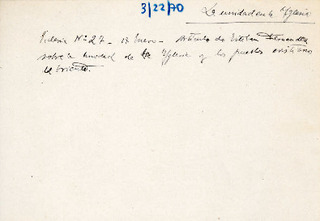 3/22/70
La unidad en la Iglesia
Ecclesia Nº 27 - 13 Enero - Artículo de Esteban Fernandez
sobre la unidad de la Iglesia y los pueblos cristianos
de Oriente.